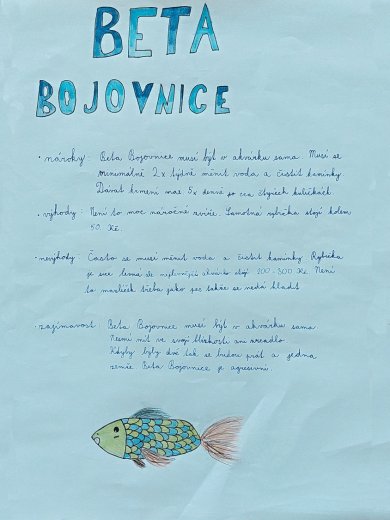 BETA
BOJOVNICE
• nároky: Beta Bojovnice musí být v akvárku sama. Musí se
minimálně 2x týdně měnit voda a čistit kamínky.
Dávat krmení max 5x denně po čtyřech kuličkách.
• výhody: Není to moc náročné zvíře. Samotná rybička stojí kolem
50 Kč.
• nevýhody: Často se musí měnit voda a čistit kamínky. Rybička
je sice levná ale nejlevnější akvárko stojí 200-300 Kč. Není
to mazlíček třeba jako pes takže se nedá hladit
• zajímavost: Beta Bojovnice musí být v akvárku sama.
Nesmí mít ve svojí blízkosti ani zrcadlo.
Kdyby byly dvě tak se budou prát a jedna
zemře Beta Bojovnice je agresivní.